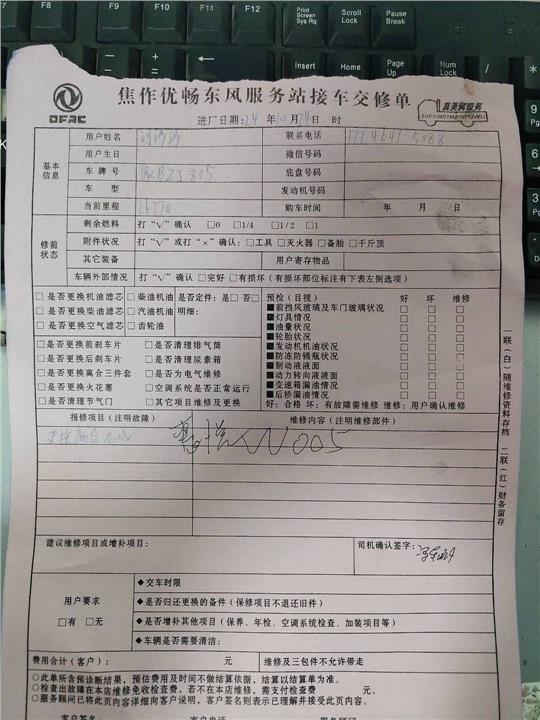 F7
F8
F9
F10
F11
F12
Print Screen Sys Rq
Scroll Lock
Pause Break
Insert
Home
Page Up
Num Lock
/
DFAC
焦作优畅东风服务站接车交修单
真美满服务
ZHENMEIMANFUWU
进厂日期: 24 年 月 日 时
用户姓名
联系电话
基本信息
用户生日
微信号码
车牌号
底盘号码
车型
发动机号码
当前里程
购车时间 年 月 日
修前状态
剩余燃料 打“√”确认 □0 □1/4 □1/2 □1
附件状况 打“√”或打“×”确认: □工具 □灭火器 □备胎 □千斤顶
其它装备
用户寄存物品
车辆外部情况 打“√”确认 □完好 □有损坏(有损坏部位标注有下表左侧选项)
□是否更换机油滤芯 □柴油机油 是否定件: 是□ 否□
□是否更换柴油滤芯 □汽油机油 明细:
□是否更换空气滤芯 □齿轮油
□是否更换前刹车片 □是否清理排气筒
□是否更换后刹车片 □是否清理尿素箱
□是否更换离合三件套 □是否为电气维修
□是否更换火花塞 □空调系统是否正常运行
□是否清理节气门 □其它项目维修及更换
预检(目视) 好 坏 维修
■前挡风玻璃及车门玻璃状况 □ □ □
■灯具情况 □ □ □
■油量状况 □ □ □
■轮胎状况 □ □ □
■发动机机油状况 □ □ □
■防冻防锈瓶状况 □ □ □
■制动液液面 □ □ □
■动力转向液液面 □ □ □
■变速箱漏油情况 □ □ □
■后桥漏油情况 □ □ □
好: 合格 坏: 有故障需维修 维修: 用户确认维修
报修项目(注明故障)
维修内容(注明维修部件)
W005
一联(白)随维修资料存档
二联(红)财务留存
建议维修项目或增补项目:
司机确认签字:
用户要求
□有 □无
◆交车时限
◆是否归还更换的备件(保修项目不退还旧件)
◆是否增补其他项目(保养、年检、空调系统检查、加装项目等)
◆车辆是否需要清洁:
费用合计(客户): 元
维修及三包件不允许带走
○此单所含预诊断结果,预估费用及时间不做结算依据,结算以结算单为准。
○检查出故障在本店维修免收检查费,若不在本店维修,需支付检查费 元。
○服务顾问已将此页内容详细向客户说明,客户签名则表示已理解并接受此页内容。
客户签名
服务顾问